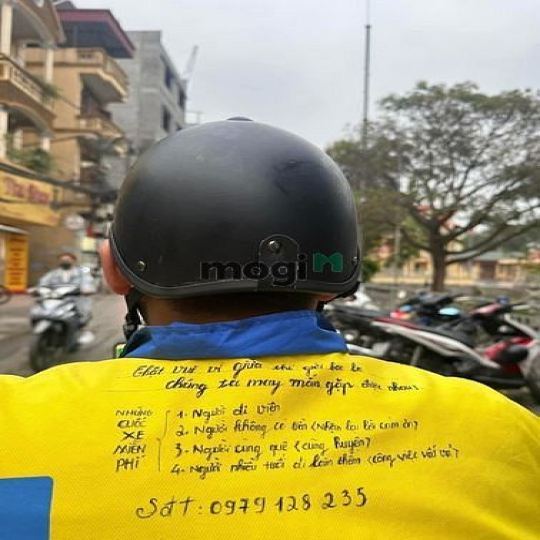 mogi
Thật vui vì giữa thế giới bao la
chúng ta may mắn gặp được nhau!
NHỮNG
CUỐC
XE
MIỄN
PHÍ
1. Người đi viện
2. Người không có tiền (Nhận lại lời cảm ơn)
3. Người cùng quê (cùng huyện)
4. Người nhiều tuổi đi làm thêm (công việc vất vả)
Sđt: 0979 128 235